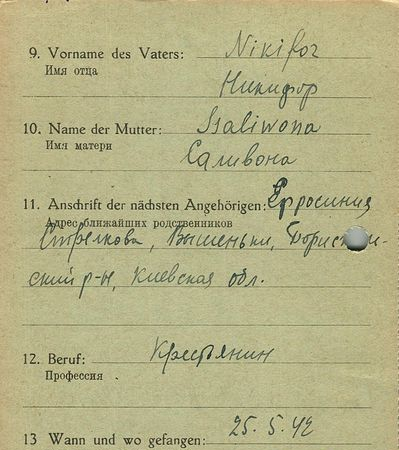 9. Vorname des Vaters: Nikifor
Имя отца
Никифор
10. Name der Mutter: Ssaliwona
Имя матери
Саливона
11. Anschrift der nächsten Angehörigen: Ефросиния
Адрес ближайших родственников
Стрелкова, Вышеньки, Борисп
ский р-н, Киевская обл.
12. Beruf: Крестянин
Профессия
13 Wann und wo gefangen: 25. 5. 42